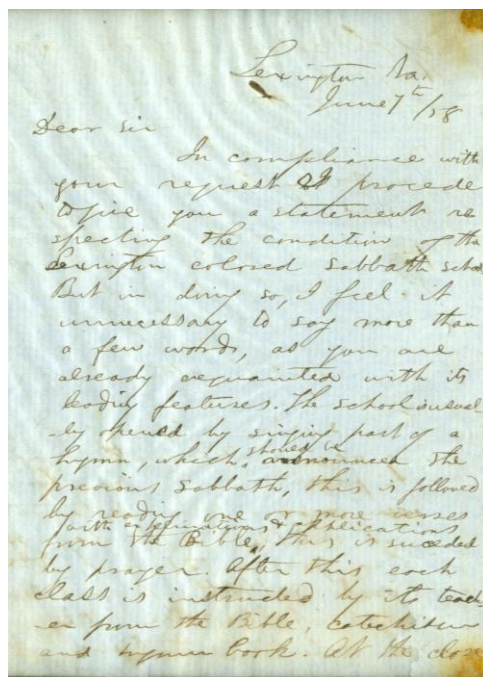 Lexington Va.
June 7th /58
Dear Sir
In compliance with
your request I procede
to give you a statement re
specting the condition of the
Lexington colored Sabbath school
But in doing so, I feel it
unnecessary to say more than
a few words, as you are
already acquainted with its
leading features. The school is usual
-ly opened by singing part of a
should be
hymn, which announced the
precious Sabbath, this is followed
by reading one or more verses
with explanations & applications
from the Bible, this is succeded
by prayer. After this each
class is instructed by its teach
-er from the Bible, catechism
and hymn book. At the close